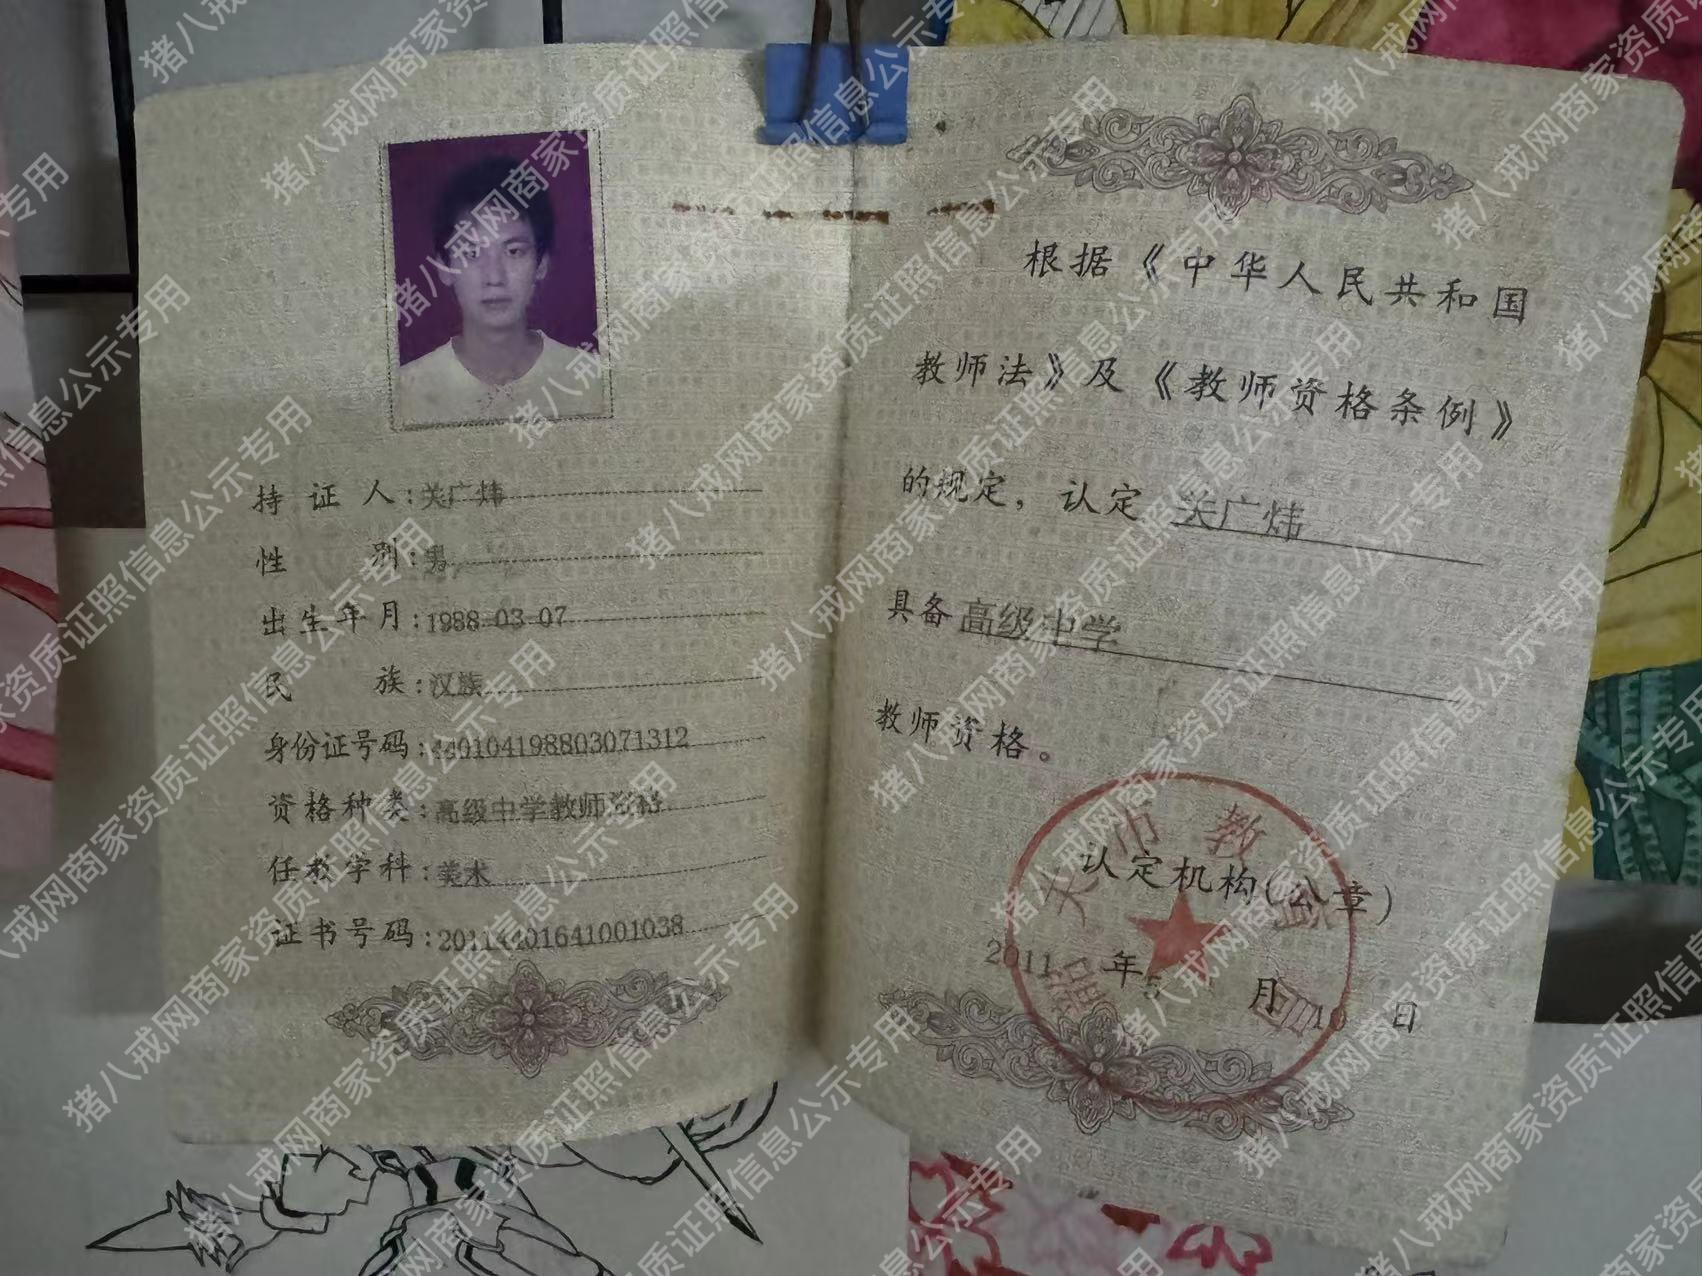 持证人:关广炜
性别:男
出生年月:1988-03-07
民族:汉族
身份证号码:440104198803071312
资格种类:高级中学教师资格
任教学科:美术
证书号码:20114401641001038
根据《中华人民共和国
教师法》及《教师资格条例》
的规定，认定 关广炜
具备 高级中学
教师资格。
认定机构(公章)
2011 年 5 月 日
市教
猪八戒网商家资质证照信息公示专用